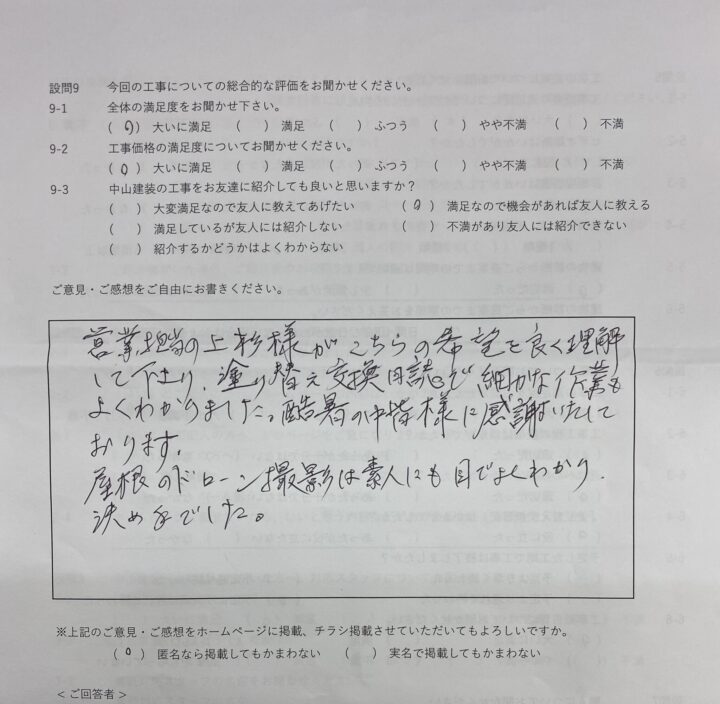 設問9 今回の工事についての総合的な評価をお聞かせください。
9-1 全体の満足度をお聞かせ下さい。
(○) 大いに満足 ( ) 満足 ( ) ふつう ( ) やや不満 ( ) 不満
9-2 工事価格の満足度についてお聞かせください。
(○) 大いに満足 ( ) 満足 ( ) ふつう ( ) やや不満 ( ) 不満
9-3 中山建装の工事をお友達に紹介しても良いと思いますか？
( ) 大変満足なので友人に教えてあげたい (○) 満足なので機会があれば友人に教える
( ) 満足しているが友人には紹介しない ( ) 不満があり友人には紹介できない
( ) 紹介するかどうかはよくわからない
ご意見・ご感想をご自由にお書きください。
営業担当の上杉様がこちらの希望を良く理解
して下さり、塗り替え交換日誌で細かな作業も
よくわかりました。酷暑の中皆様に感謝いたして
おります。
屋根のドローン撮影は素人にも目でよくわかり、
決め手でした。
※上記のご意見・ご感想をホームページに掲載、チラシ掲載させていただいてもよろしいですか。
(○) 匿名なら掲載してもかまわない ( ) 実名で掲載してもかまわない
＜ご回答者＞